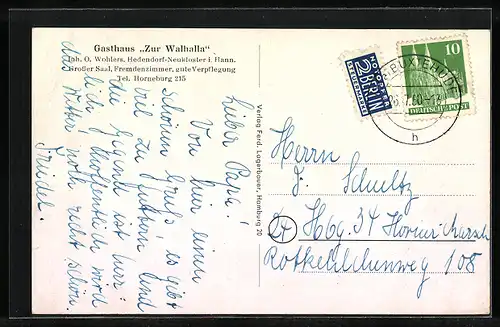 Gasthaus „Zur Walhalla“
Inh. O. Wohlers, Hedendorf-Neukloster i. Hann.
Großer Saal, Fremdenzimmer, gute Verpflegung
Tel. Horneburg 215
Lieber Papa!
Von hier einen
schönen Gruß, es gibt
viel zu futtern und
die Gegend ist herr-
lich. Hoffentlich wird
das Wetter noch recht schön.
Friedel.
Verlag Ferd. Lagerbauer, Hamburg 20
NOTOPFER
2 BERLIN
STEUERMARKE
10
DEUTSCHE POST
BUXTEHUDE
h
Herrn
J. Schultz
24 Hbg. 34 Horner Marsch
Rotkehlchenweg 108